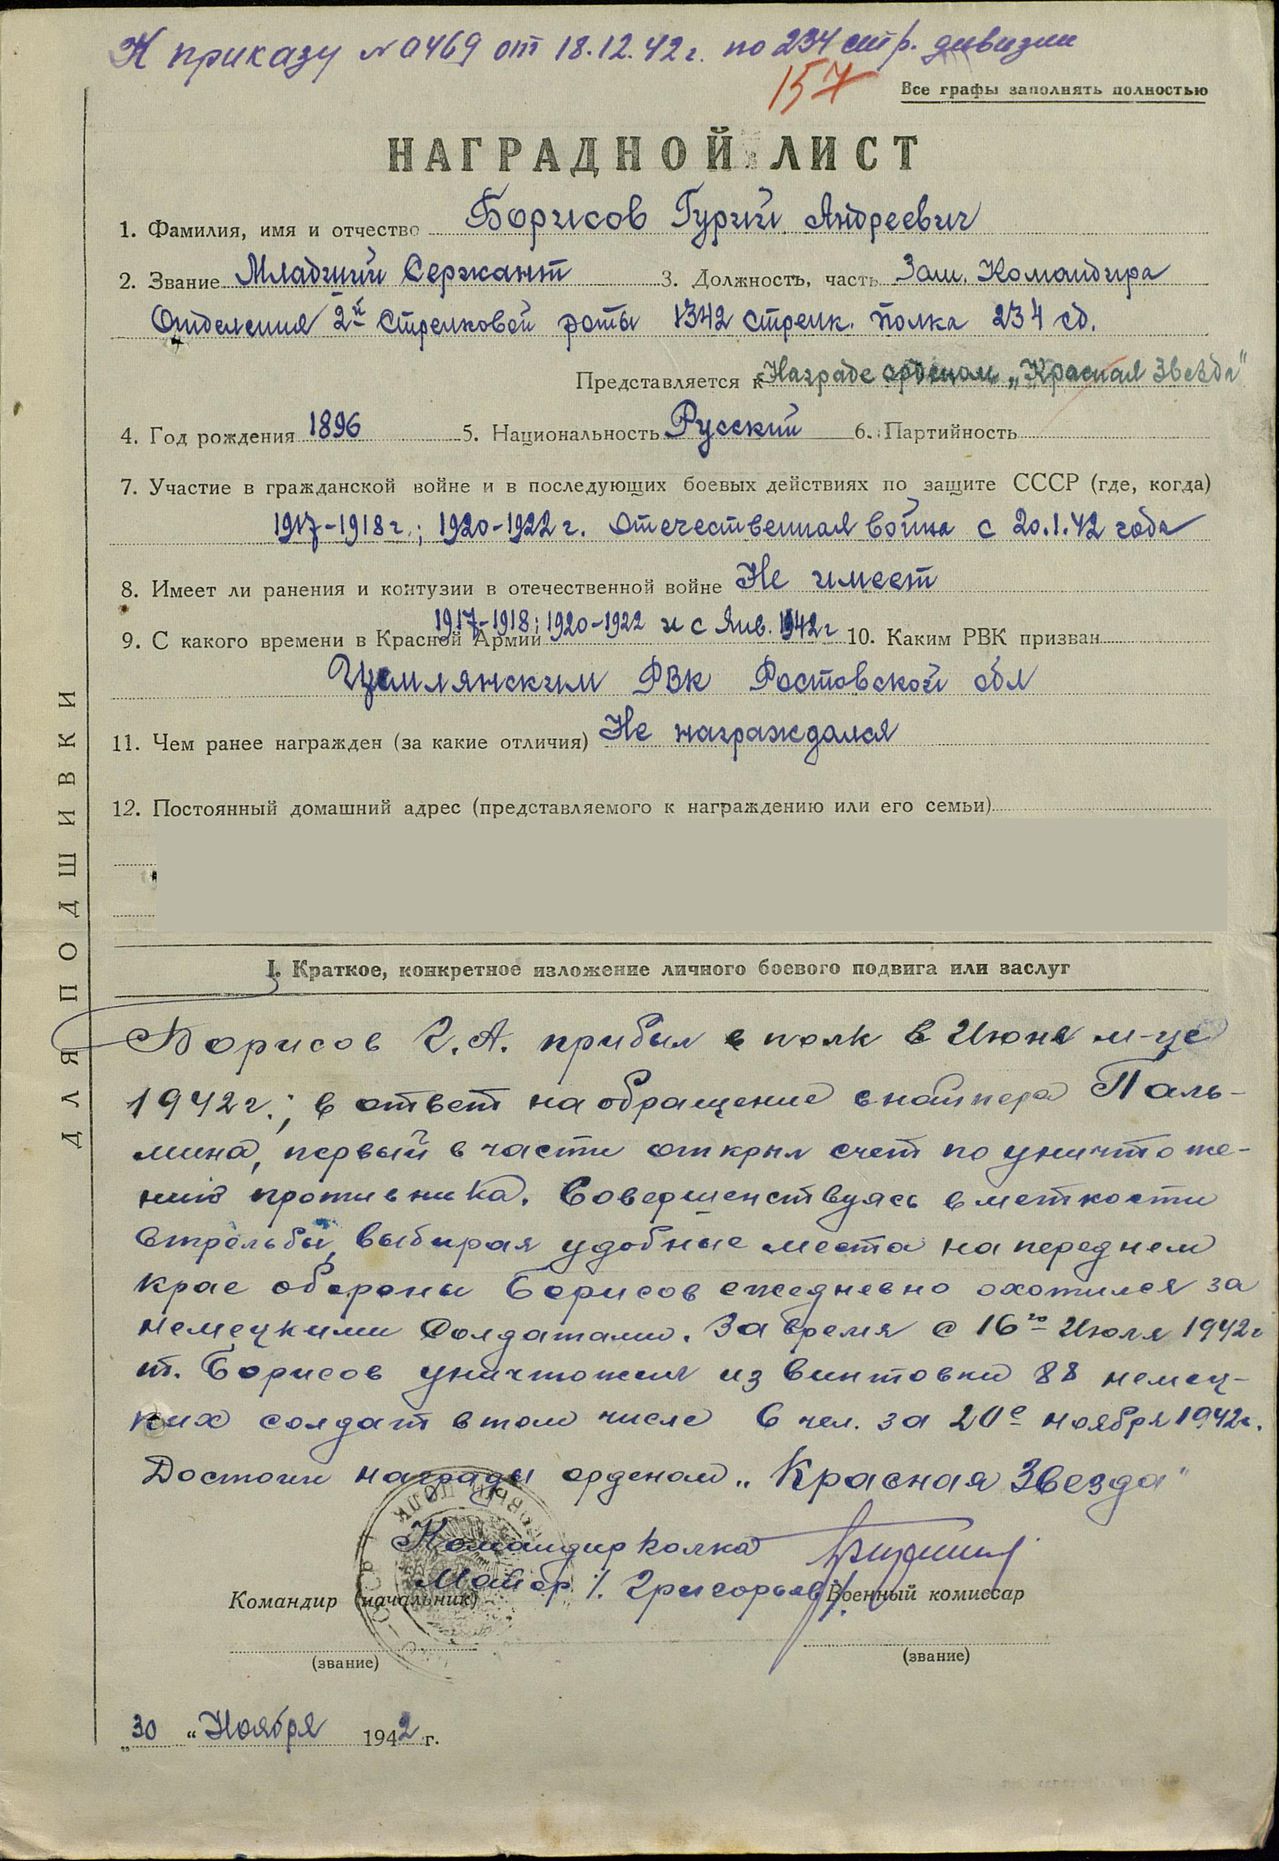 К приказу № 0469 от 18.12.42 г. по 234 стр. дивизии
157
Все графы заполнять полностью
НАГРАДНОЙ ЛИСТ
1. Фамилия, имя и отчество Борисов Гурий Андреевич
2. Звание Младший Сержант 3. Должность, часть Зам. Командира
Отделения 2й Стрелковой роты 1342 стрелк. полка 234 сд.
Представляется к Награде орденом „Красная Звезда"
4. Год рождения 1896 5. Национальность Русский 6. Партийность
7. Участие в гражданской войне и в последующих боевых действиях по защите СССР (где, когда)
1917-1918 г.; 1920-1922 г. Отечественная война с 20.1.42 года
8. Имеет ли ранения и контузии в отечественной войне Не имеет
9. С какого времени в Красной Армии 1917-1918; 1920-1922 и с Янв. 1942 г 10. Каким РВК призван
Цимлянским РВК Ростовской обл
11. Чем ранее награжден (за какие отличия) Не награждался
12. Постоянный домашний адрес (представляемого к награждению или его семьи)
ДЛЯ ПОДШИВКИ
I. Краткое, конкретное изложение личного боевого подвига или заслуг
Борисов Г.А. прибыл в полк в Июне м-це
1942 г.; в ответ на обращение снайпера Паль-
мина, первый в части открыл счет по уничтоже-
нию противника. Совершенствуясь в меткости
стрельбы, выбирая удобные места на переднем
крае обороны Борисов ежедневно охотился за
немецкими солдатами. За время с 16го Июля 1942 г
т. Борисов уничтожил из винтовки 88 немец-
ких солдат в том числе 6 чел. за 20е ноября 1942 г.
Достоин награды орденом „Красная Звезда"
Командир полка
Майор /. Григорьев/.
Командир (начальник) Военный комиссар
(звание) (звание)
„30 " Ноября 1942 г.